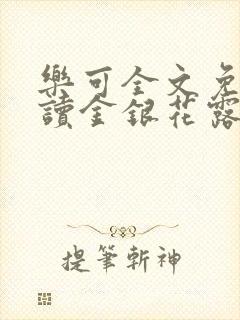 樂可全文免
讀金銀花露
提筆斬神